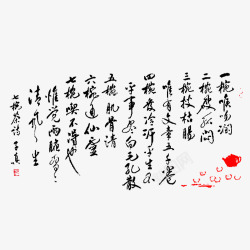 一碗喉吻润
二碗破孤闷
三碗搜枯肠
唯有文字五千卷
四碗发轻汗平生不
平事尽向毛孔散
五碗肌骨清
六碗通仙灵
七碗吃不得也
唯觉两腋习习
清风生
七碗茶诗